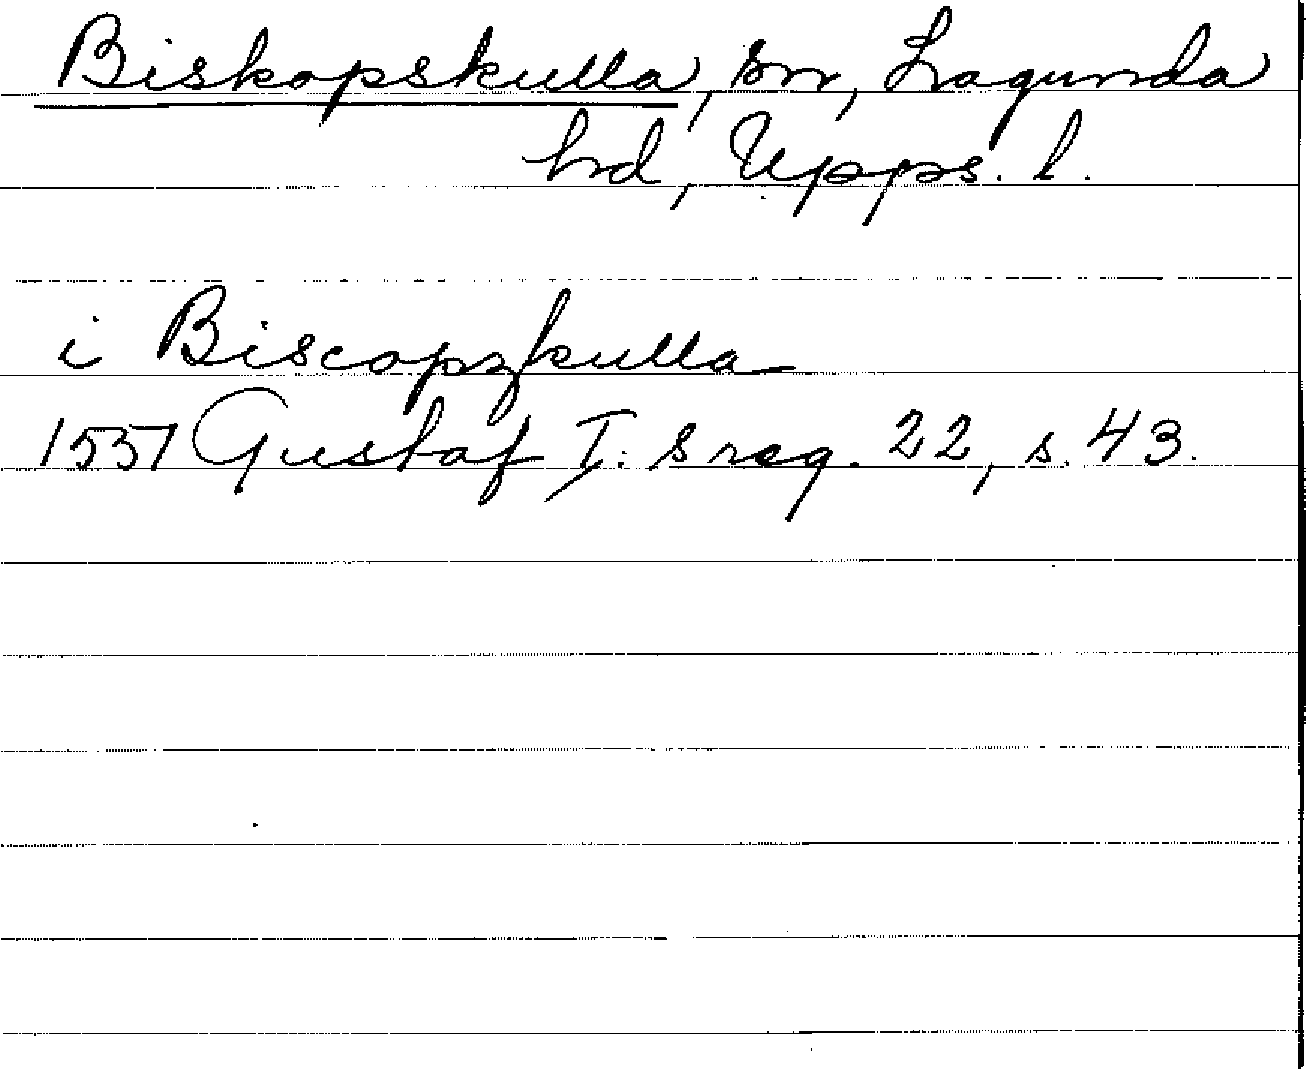 Biskopskulla, sn, Lagunda
hd, Upps. l.
i Biscopzkulla
1537 Gustaf I:s reg. 22, s. 43.